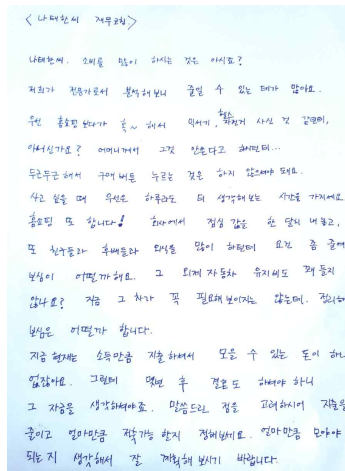 < 나태한씨 재무코칭 >
나태한씨. 소비를 많이 하시는 것은 아시죠?
저희가 전문가로서 분석해보니 줄일 수 있는 데가 많아요.
우선 홈쇼핑 보다가 혹~ 해서 믹서기, 헬스 자전거 사신 것 같은데,
아쉬신가요? 어머니께서 그것 안쓴다고 하던데…
두근두근 해서 구매 버튼 누르는 것은 하지 않으셔야 돼요.
사고 싶을 때 우선은 하루라도 더 생각해 보는 시간을 가지세요
홈쇼핑 또 합니다! 회사에서 점심 값을 한 달치 내놓고,
또 친구들과 후배들과 외식을 많이 하던데 요건 좀 줄여
보심이 어떨까 해요. 그 외제 자동차 유지비도 꽤 들지
않나요? 지금 그 차가 꼭 필요해 보이지는 않는데. 정리해
보심은 어떨까 합니다.
지금 현재는 소득만큼 지출하셔서 모을 수 있는 돈이 하나
없잖아요. 그런데 몇년 후 결혼도 하셔야 하니
그 자금을 생각하셔야죠. 말씀드린 점을 고려하시어 지출을
줄이고 얼마만큼 저축가능 한지 정해보세요. 얼마만큼 모아야
되는지 생각해서 잘 계획해 보시기 바랍니다.